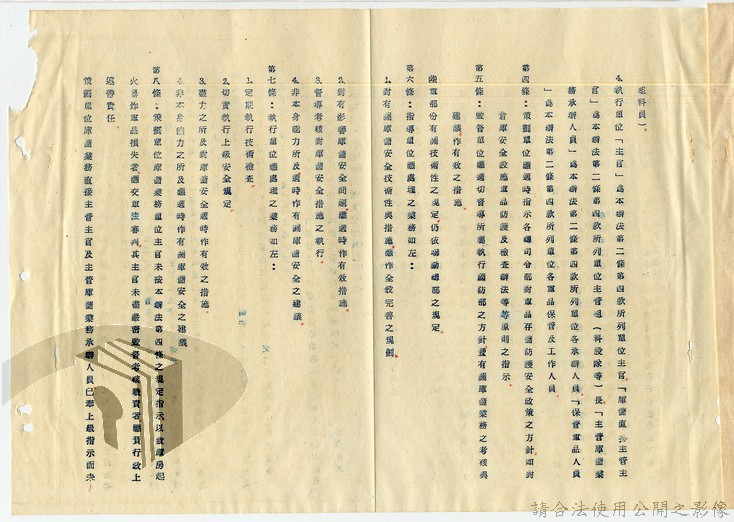 組科員）
4.執行單位「主官」為本辦法第二條第四款所列單位主官「庫儲直接主管主
官」為本辦法第二條第四款所列單位主管組（科股隊等）長「主管庫儲業
務承辦人員」為本辦法第二條第四款所列單位各承辦人員「保管軍品人員
」為本辦法第二條第四款所列單位各軍品保管及工作人員
第四條：策劃單位應適時指示各總司令部對軍品存儲防護安全政策之方針如對
倉庫安全設施軍品防護及檢查辦法等等原則之指示
第五條：監督單位應適切督導所屬執行國防部之方針並有關庫儲業務之考核與
建議作有效之措施
陸軍部份有關技術性之規定仍依聯勤總部之規定
第六條：指導單位應處理之業務如左：
1.對有關庫儲安全技術性與措施應作全般完善之規劃
2.對有影響庫儲安全問題應適時作有效措施
3.督導考核對庫儲安全措施之執行
4.非本身能力所及適時作有關庫儲安全之建議
第七條：執行單位應處理之業務如左：
1.定期執行技術檢查
2.切實執行上級安全規定
3.盡力之所及對庫儲安全適時作有效之措施
4.非本身能力之所及應適時作有關庫儲安全之建議
第八條：策劃單位庫儲業務單位主官未按本辦法第四條之規定指示以致庫房起
火爆炸軍品損失者應交軍法審判其主官未盡嚴密監督考核職責者應負行政上
連帶責任
策劃單位庫儲業務直接主管主官及主管庫儲業務承辦人員已奉上級指示而未
請合法使用公開之影像